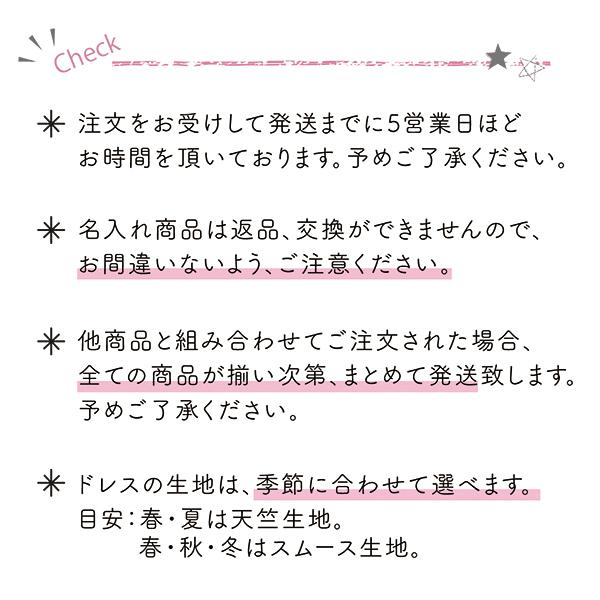 Check
✳ 注文をお受けして発送までに5営業日ほど
お時間を頂いております。予めご了承ください。
✳ 名入れ商品は返品、交換ができませんので、
お間違いないよう、ご注意ください。
✳ 他商品と組み合わせてご注文された場合、
全ての商品が揃い次第、まとめて発送致します。
予めご了承ください。
✳ ドレスの生地は、季節に合わせて選べます。
目安：春・夏は天竺生地。
春・秋・冬はスムース生地。